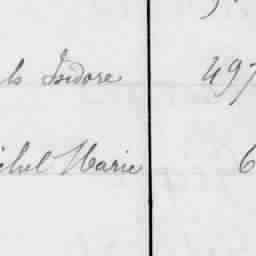 ls Isidore 497
ichel Marie 6